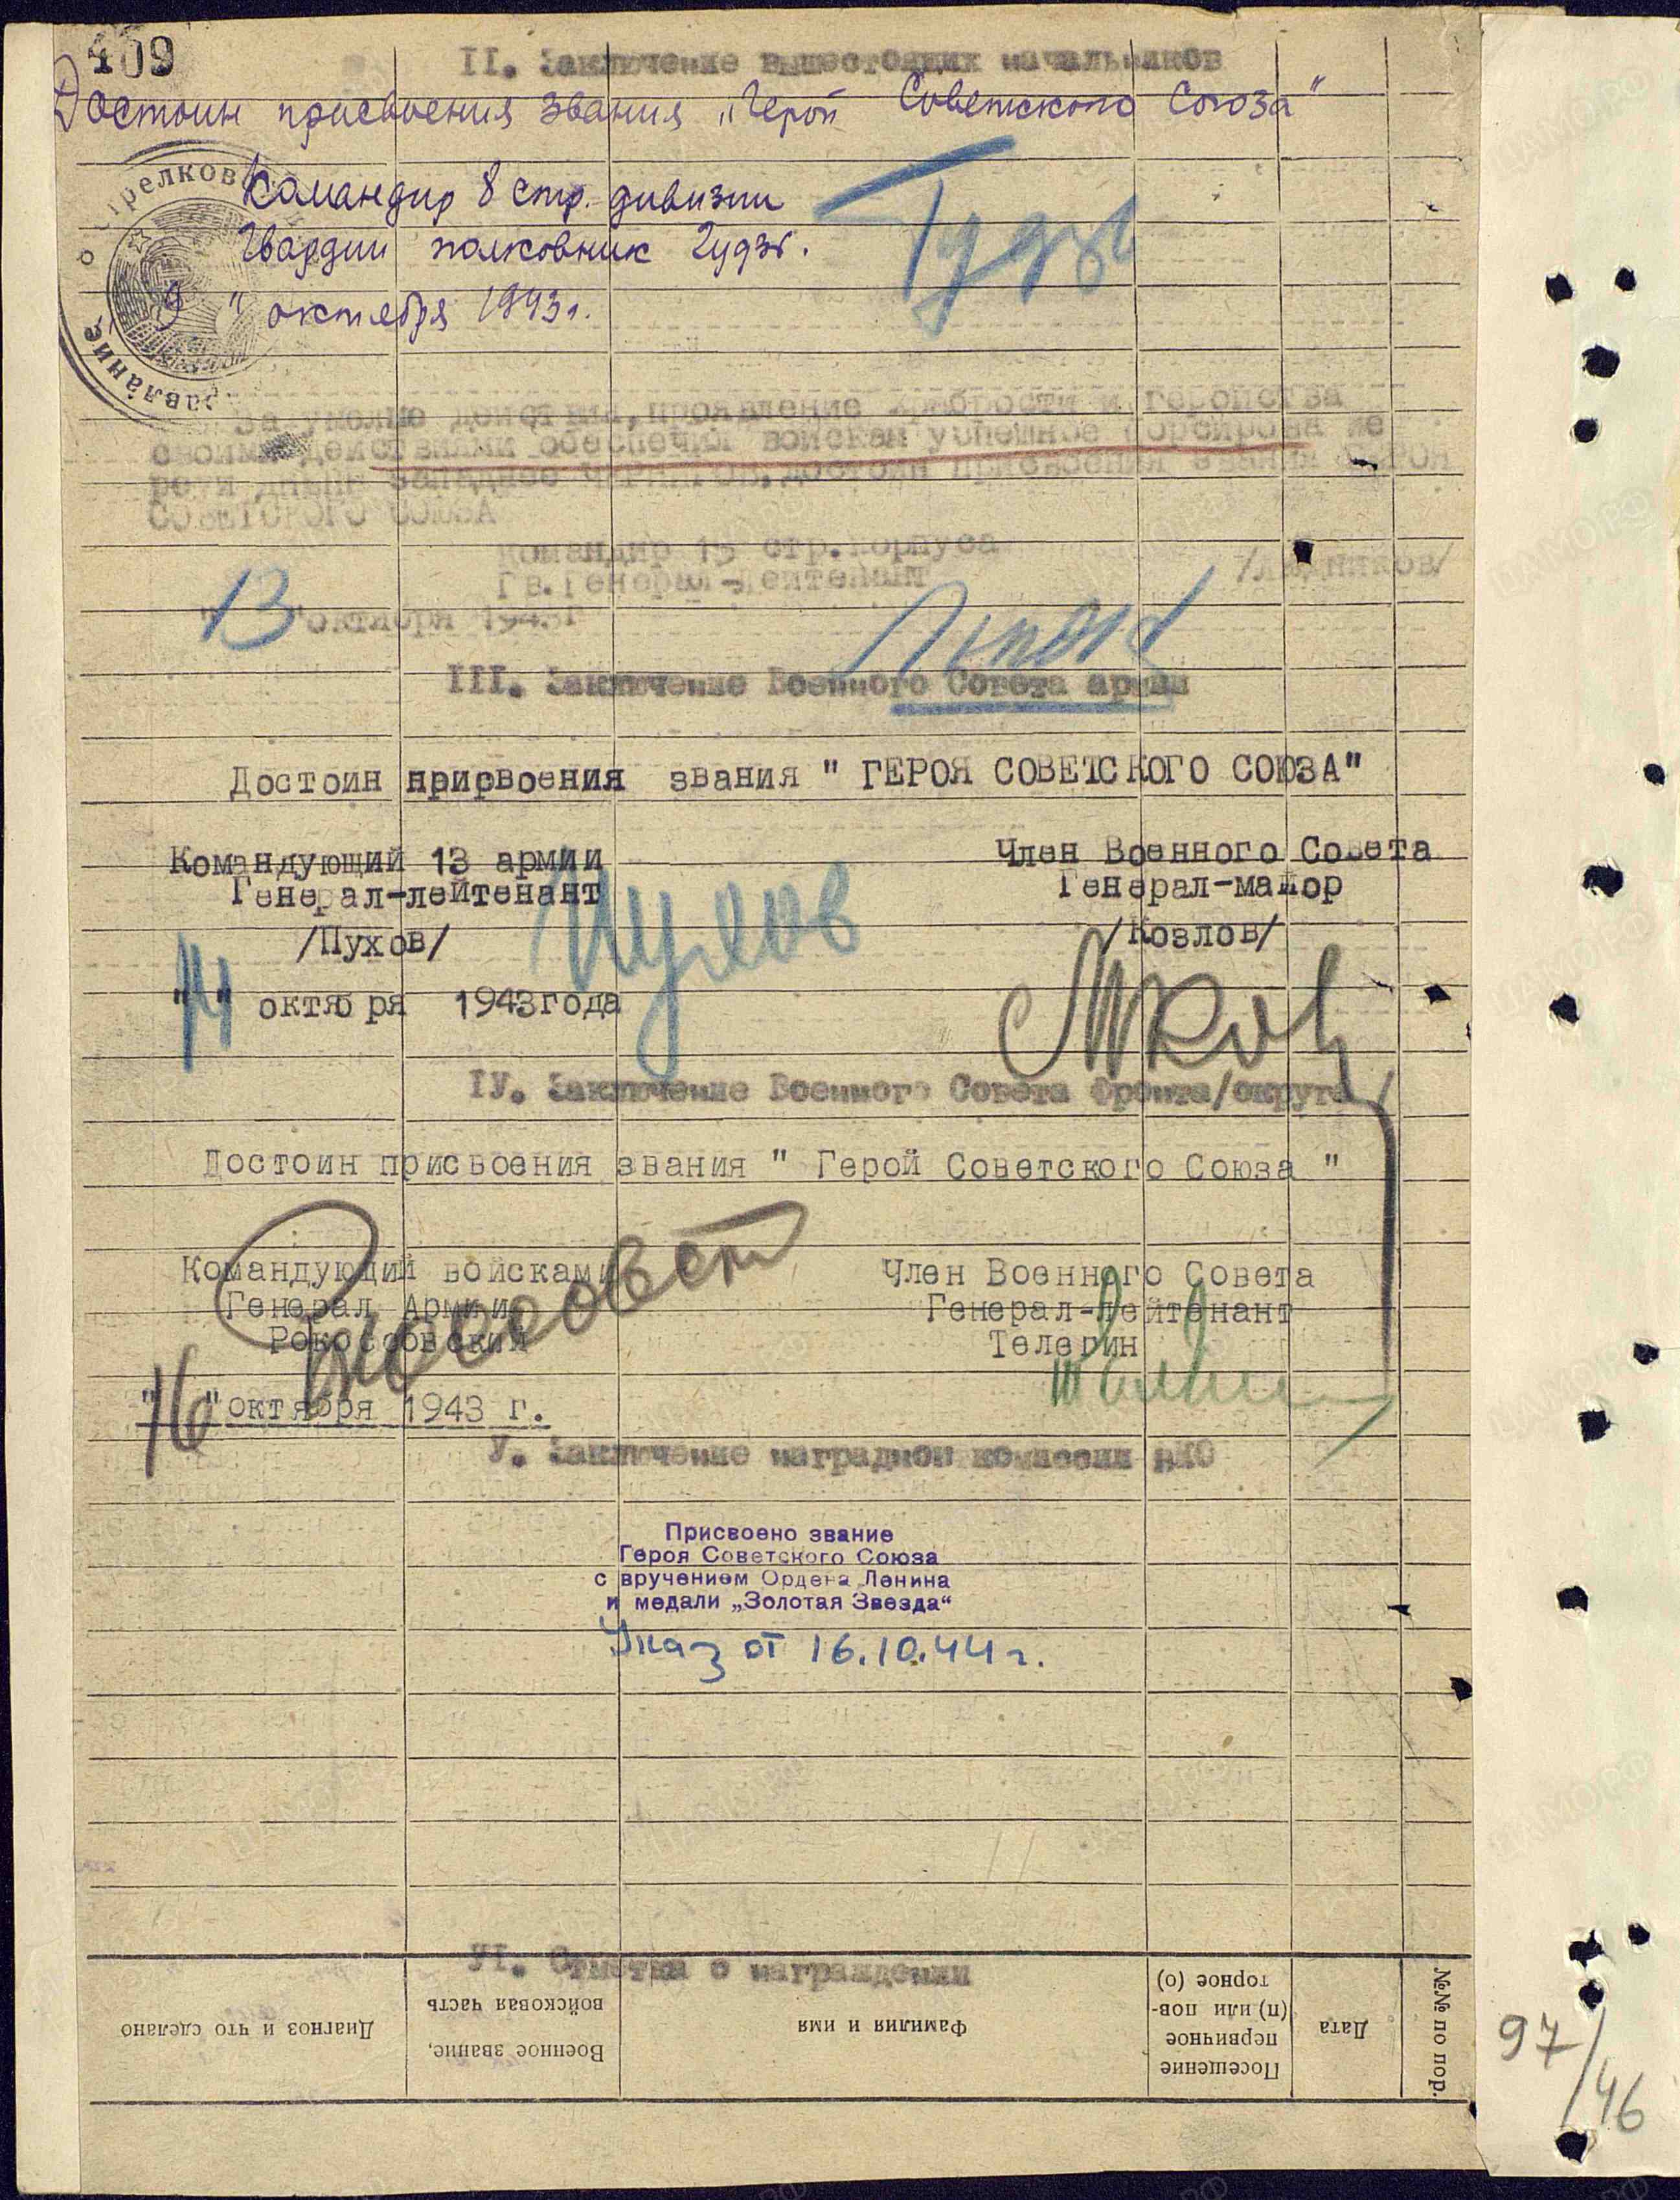 409
II. Заключение вышестоящих начальников
Достоин присвоения звания „Герой Советского Союза"
Командир 8 стр. дивизии
Гвардии полковник Гудзь.
9 " октября 1943г.
Гудзь
За умелые действия, проявление храбрости и геройства
своими действиями обеспечил войскам успешное форсирование
реки Днепр западнее Чернигов, достоин присвоения звания ГЕРОЯ
СОВЕТСКОГО СОЮЗА
Командир 15 стр. корпуса
Гв. Генерал-лейтенант
/Людников/
"13" октября 1943г
III. Заключение Военного Совета армии
Достоин присвоения звания " ГЕРОЯ СОВЕТСКОГО СОЮЗА"
Командующий 13 армии Член Военного Совета
Генерал-лейтенант Генерал-майор
/Пухов/ Пухов /Козлов/
"14" октября 1943года
IУ. Заключение Военного Совета Фронта/округа/
Достоин присвоения звания " Герой Советского Союза "
Командующий войсками Член Военного Совета
Генерал Армии Генерал-лейтенант
Рокоссовский Телегин
"16" октября 1943 г.
У. Заключение наградной комиссии НКО
Присвоено звание
Героя Советского Союза
с вручением Ордена Ленина
и медали „Золотая Звезда"
Указ от 16.10.44 г.
УI. Отметка о награждении
№№ по пор.
Дата
Посещение
первичное
(п) или пов-
торное (о)
Фамилия и имя
Военное звание,
войсковая часть
Диагноз и что сделано
97/46